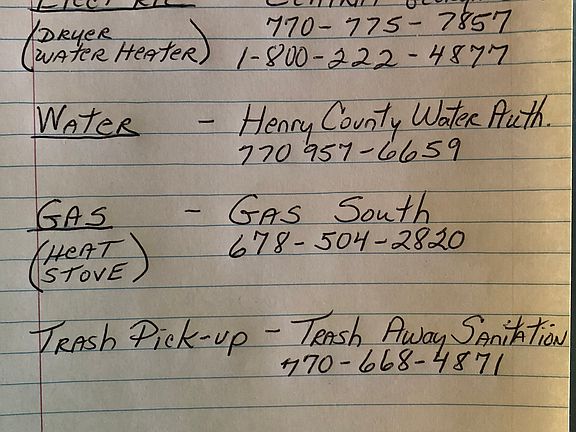 ELECTRIC
770-775-7857
(DRYER
WATER HEATER) 1-800-222-4877
WATER - Henry County Water Auth.
770 957-6659
GAS - GAS South
678-504-2820
(HEAT
STOVE)
TRASH Pick-up - TRASH AWAY SANITATION
770-668-4871